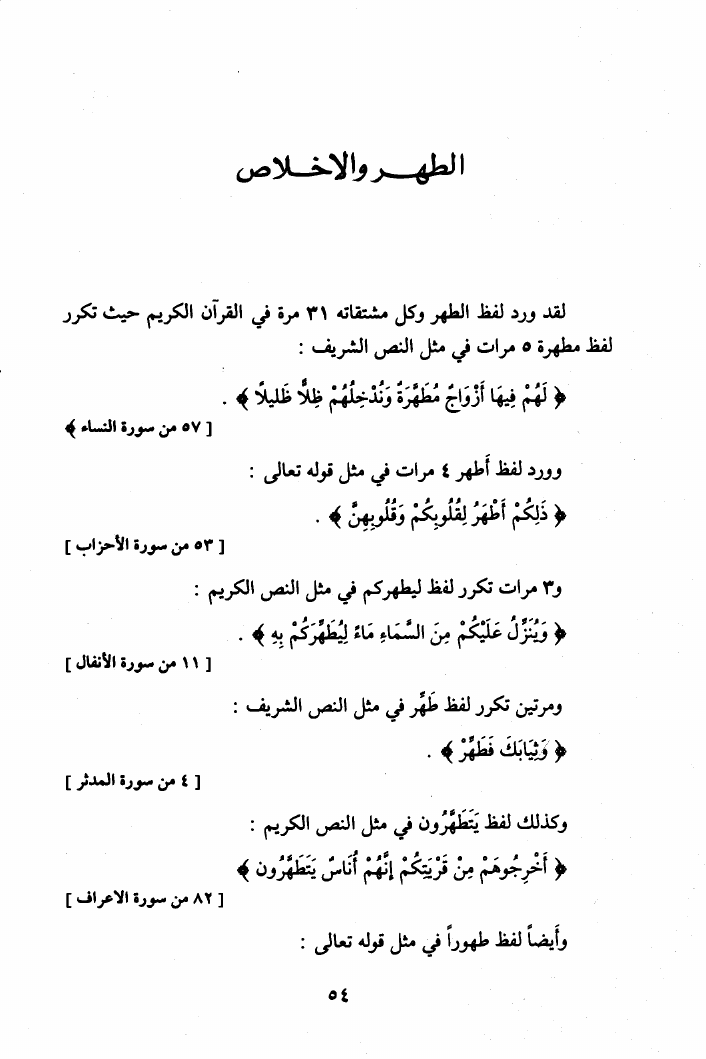 الطهـر والاخـلاص
لقد ورد لفظ الطهر وكل مشتقاته ٣١ مرة في القرآن الكريم حيث تكرر
لفظ مطهرة ٥ مرات في مثل النص الشريف :
﴿ لَهُمْ فِيهَا أَزْوَاجٌ مُطَهَّرَةٌ وَنُدْخِلُهُمْ ظِلًّا ظَلِيلًا ﴾ .
[ ٥٧ من سورة النساء ﴾
وورد لفظ أطهر ٤ مرات في مثل قوله تعالى :
﴿ ذَلِكُمْ أَطْهَرُ لِقُلُوبِكُمْ وَقُلُوبِهِنَّ ﴾ .
[ ٥٣ من سورة الأحزاب ]
و٣ مرات تكرر لفظ ليطهركم في مثل النص الكريم :
﴿ وَيُنَزِّلُ عَلَيْكُمْ مِنَ السَّمَاءِ مَاءً لِيُطَهِّرَكُمْ بِهِ ﴾ .
[ ١١ من سورة الأنفال ]
ومرتين تكرر لفظ طَهِّر في مثل النص الشريف :
﴿ وَثِيَابَكَ فَطَهِّرْ ﴾ .
[ ٤ من سورة المدثر ]
وكذلك لفظ يَتَطَهَّرُون في مثل النص الكريم :
﴿ أَخْرِجُوهَمْ مِنْ قَرْيَتِكُمْ إِنَّهُمْ أُنَاسٌ يَتَطَهَّرُون ﴾
[ ٨٢ من سورة الاعراف ]
وأيضاً لفظ طهوراً في مثل قوله تعالى :
٥٤